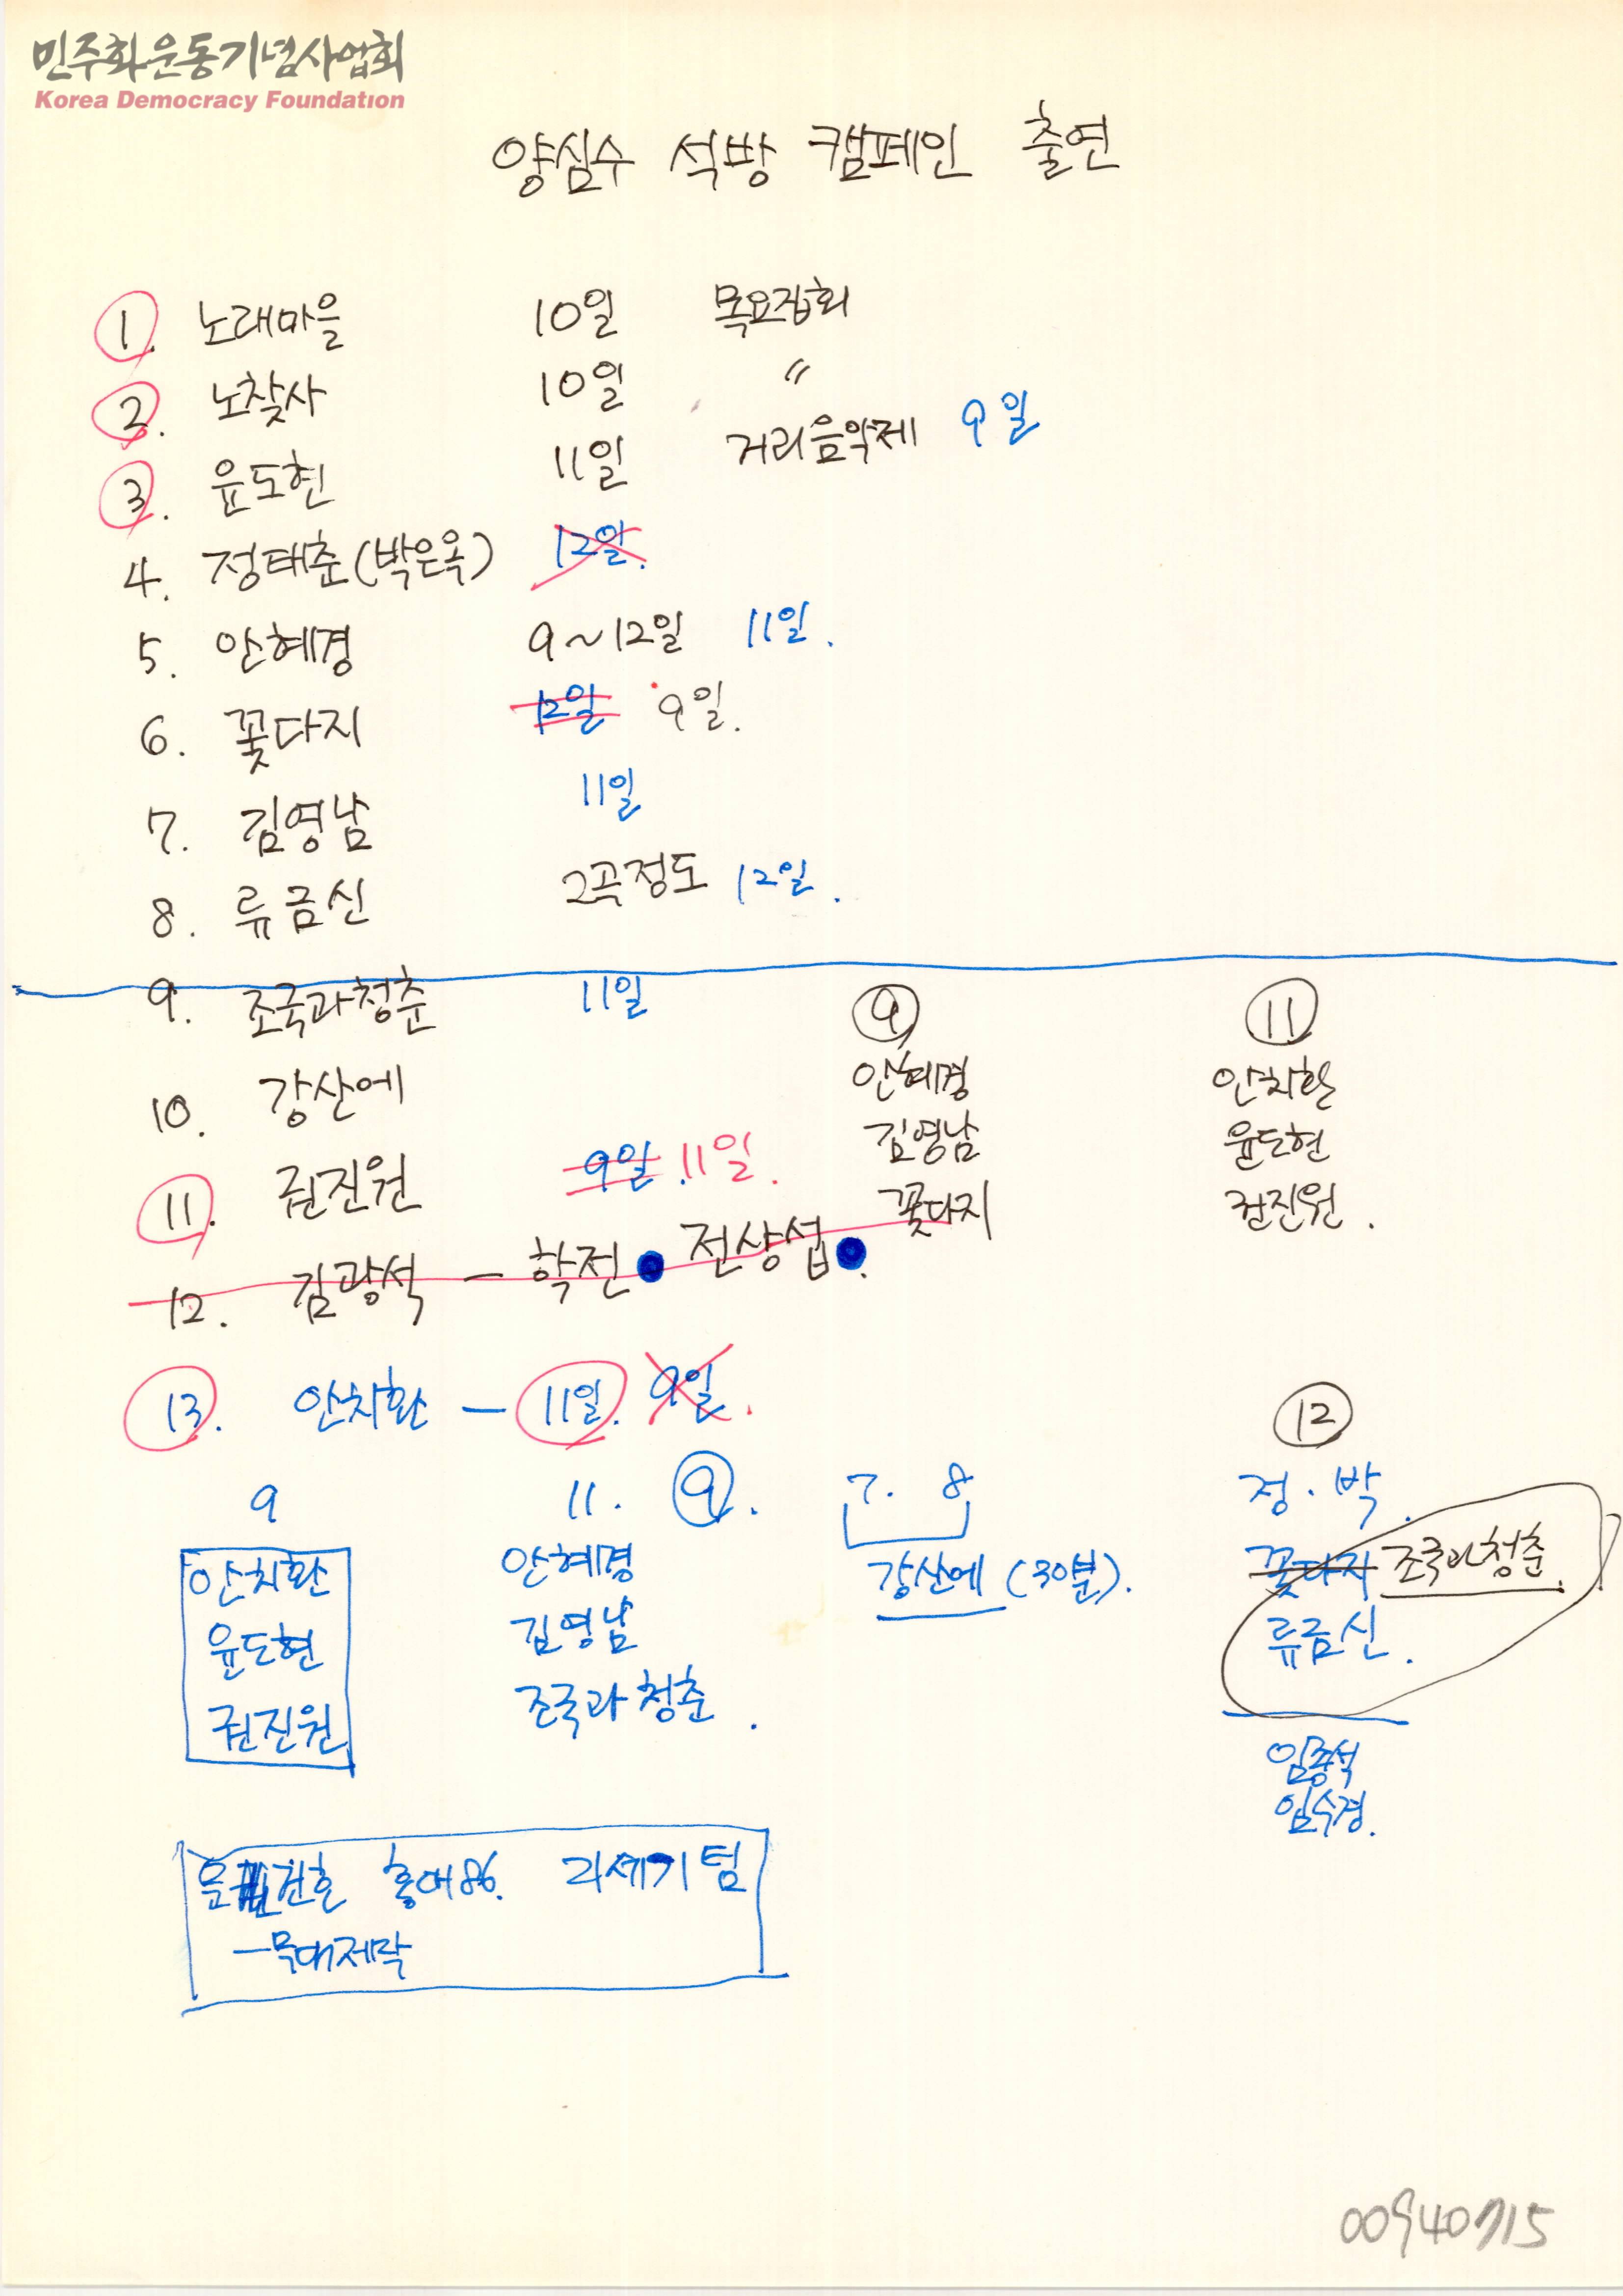 민주화운동기념사업회
Korea Democracy Foundation
양심수 석방 캠페인 출연
1. 노래마을 10일 목요집회
2. 노찾사 10일 〃
3. 윤도현 11일 거리음악제 9일
4. 정태춘(박은옥) 12일.
5. 안혜경 9~12일 11일.
6. 꽃다지 12일 9일.
7. 김영남 11일
8. 류금신 2곡정도 12일.
9. 조국과청춘 11일
10. 강산에
11. 권진원 9일. 11일.
12. 김광석 - 학전 전상섭.
13. 안치환 - 11일. 9일.
⑨
안혜경
김영남
꽃다지
⑪
안치환
윤도현
권진원.
9
안치환
윤도현
권진원
11. ⑨.
안혜경
김영남
조국과 청춘.
7. 8
강산에 (30분).
⑫
정·박.
꽃다지 조국과청춘.
류금신.
임종석
임수경.
건흔 홍대86. 리세기 팀
-무대제작
00940715